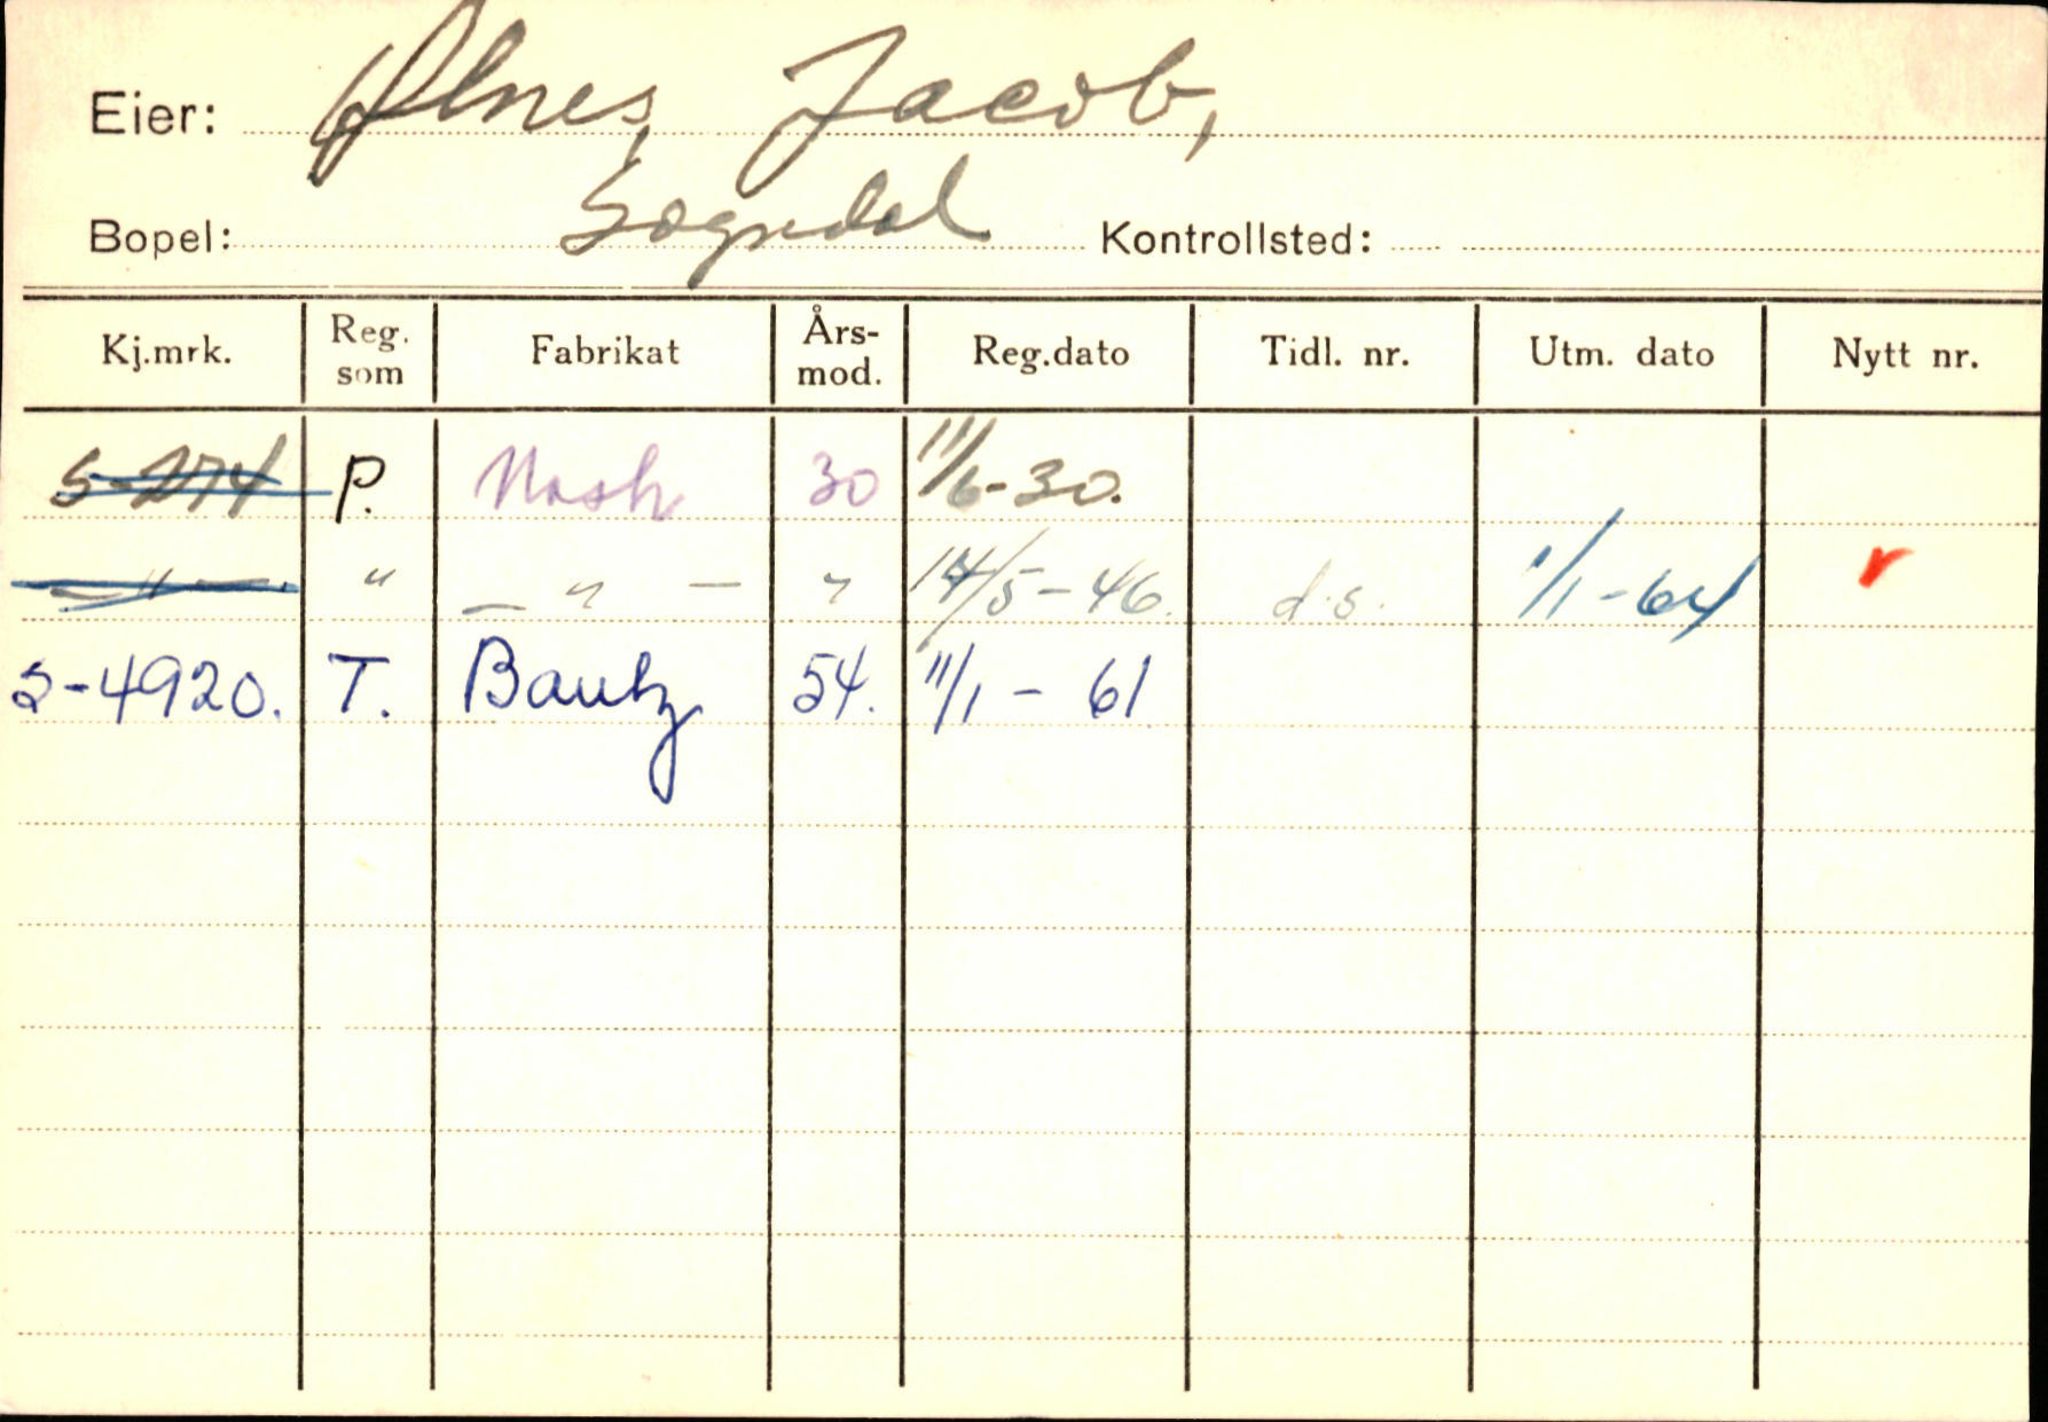 Eier: Ølnes, Jacob,
Bopel: Sogndal Kontrollsted:
Kj.mrk. Reg. som Fabrikat Års-mod. Reg.dato Tidl. nr. Utm. dato Nytt nr.
S-274 P. Nash 30 11/6-30.
— " — " — " — " 14/5-46. d.s. 1/1-64
S-4920. T. Bautz 54. 11/1-61